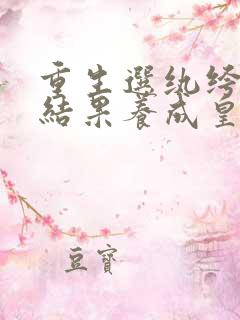 重生選紈絝
結果養成皇
豆寶